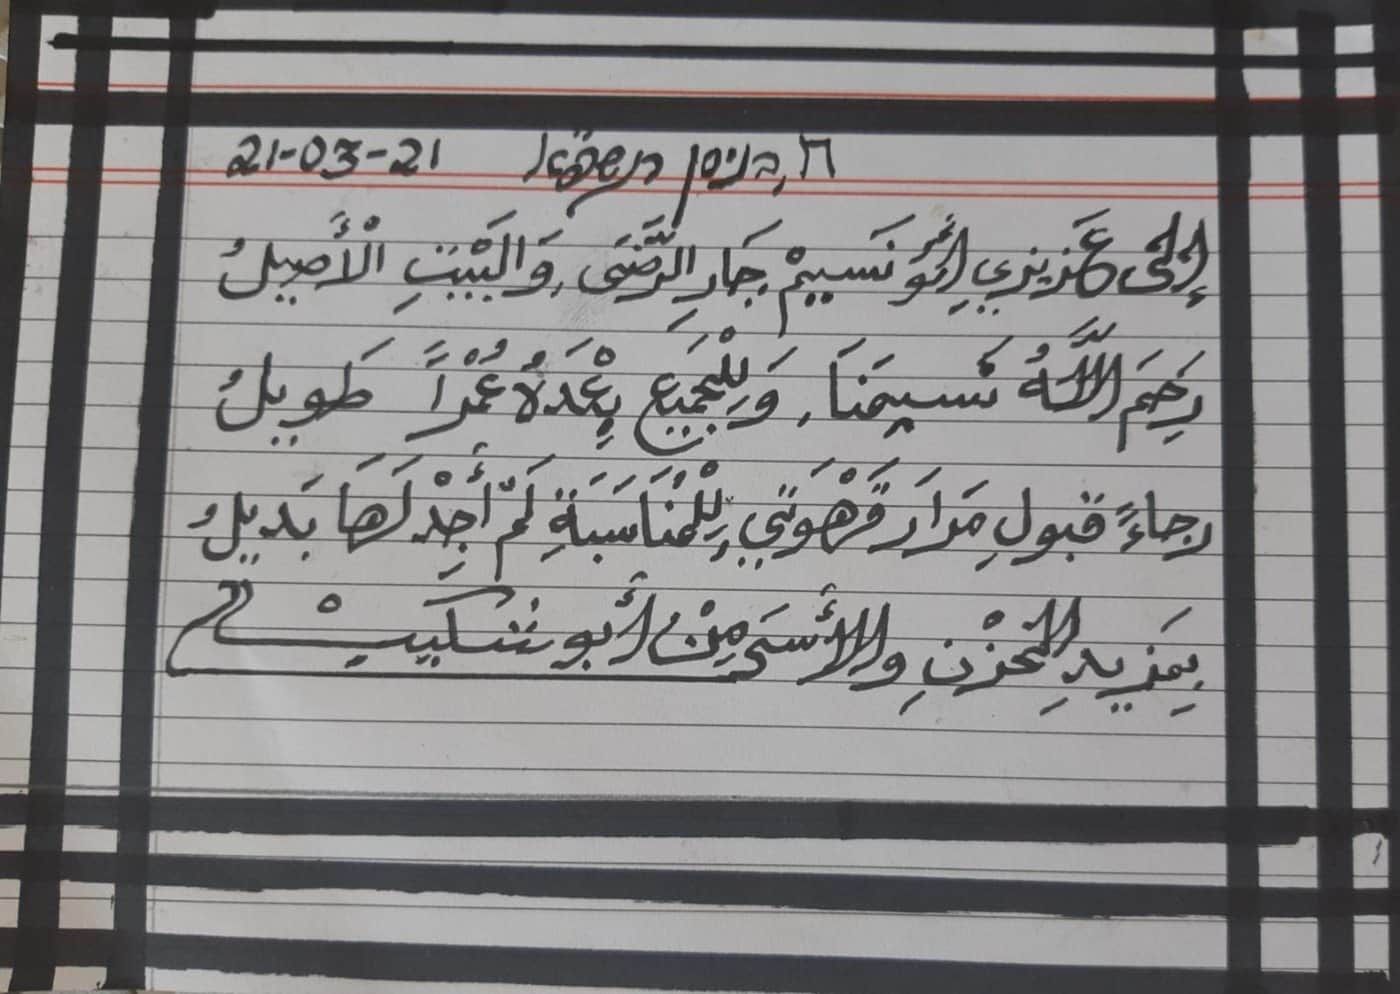 ח, בניסן תשפ"א 21-03-21
إِلَى عَزِيزِي أَبُو نَسِيمْ جَارِ الرِّضَى، وَالبَيْتِ الْأَصِيلُ
رَحِمَ اللَّهُ نَسِيمَنَا، وَلِلْجَمِيعِ بِعْدَهُ عُمْرًا طَوِيلُ
رجاءً قبولِ مَرَارَ قَهْوَتي، لِلْمُنَاسَبَةِ لَمْ أَجِدْ لَهَا بَدِيلُ
بِمَزيدِ الحُزْنِ والأَسَى مِنْ أبو شكيب